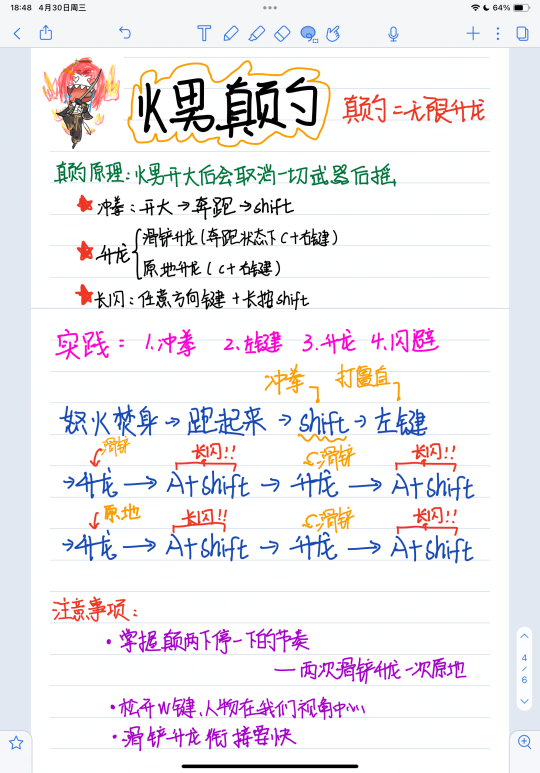 18:48 4月30日周三
64%
火男颠勺
颠勺=无限升龙
颠勺原理:火男开大后会取消一切武器后摇
冲拳:开大→奔跑→shift
升龙{滑铲升龙(奔跑状态下C+右键)
原地升龙(C+右键)
长闪:任意方向键+长按shift
实践: 1.冲拳 2.左键 3.升龙 4.闪避
冲拳 打僵直
怒火焚身→跑起来→shift→左键
滑铲 长闪!! 滑铲 长闪!!
→升龙→A+shift→升龙→A+shift
原地 长闪!! 滑铲 长闪!!
→升龙→A+shift→升龙→A+shift
注意事项:
·掌握颠两下停一下的节奏
—两次滑铲升龙一次原地
·松开W键,人物在我们视角中心
·滑铲升龙衔接要快
4
/
6